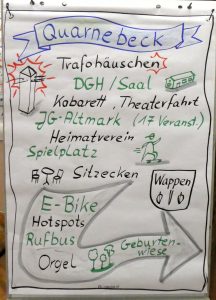 Quarnebeck
Trafohäuschen
DGH / Saal
Kabarett, Theaterfahrt
JG-Altmark (17 Veranst.)
Heimatverein
Spielplatz
Sitzecken
Wappen
E-Bike
Hotspots
Rufbus
Geburten-
wiese
Orgel